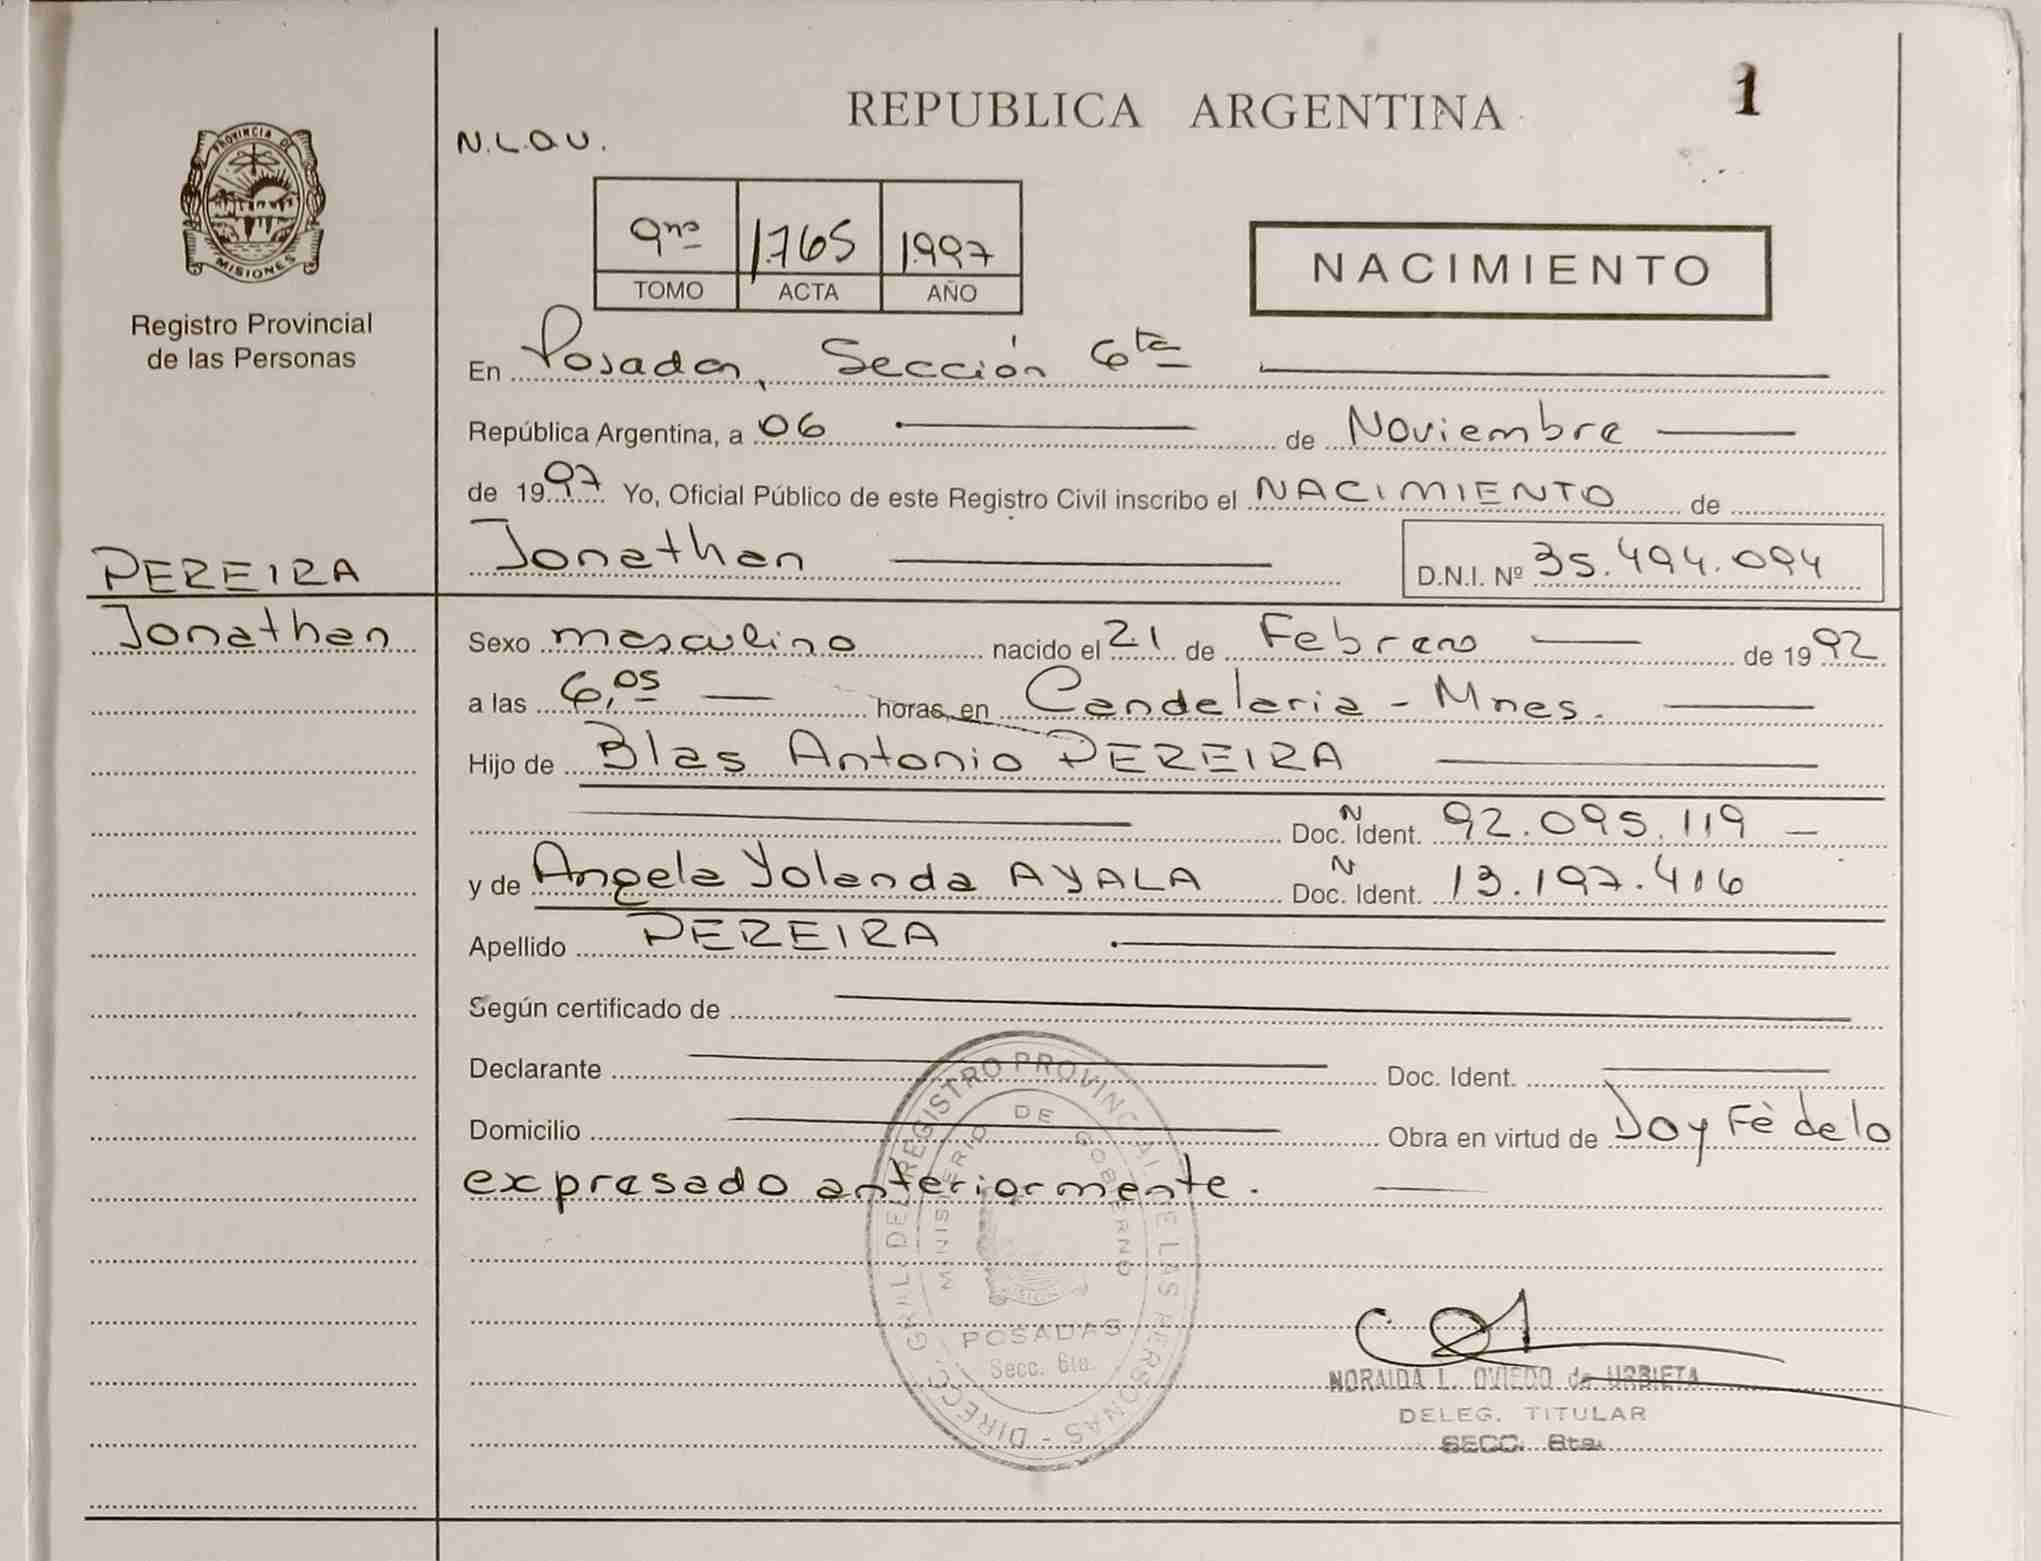 REPUBLICA ARGENTINA
1
PROVINCIA DE
MISIONES
Registro Provincial
de las Personas
N.L.O.U.
9no 1.765 1.997
TOMO ACTA AÑO
NACIMIENTO
En Posadas, Sección 6ta
República Argentina, a 06 de Noviembre
de 1997 Yo, Oficial Público de este Registro Civil inscribo el NACIMIENTO de
PEREIRA
Jonathan
Jonathan D.N.I. Nº 35.494.094
Sexo masculino nacido el 21 de Febrero de 1992
a las 6,05 horas, en Candelaria - Mnes.
Hijo de Blas Antonio PEREIRA
Doc. N Ident. 92.095.119
y de Angela Yolanda AYALA Doc. N Ident. 13.197.416
Apellido PEREIRA
Según certificado de
Declarante Doc. Ident.
Domicilio Obra en virtud de Doy Fè de lo
expresado anteriormente.
DIRECC. GRAL. DEL REGISTRO PROVINCIAL DE LAS PERSONAS -
MINISTERIO DE GOBIERNO
POSADAS
Secc. 6ta.
NORAIDA L. OVIEDO de URBIETA
DELEG. TITULAR
SECC. 6ta.